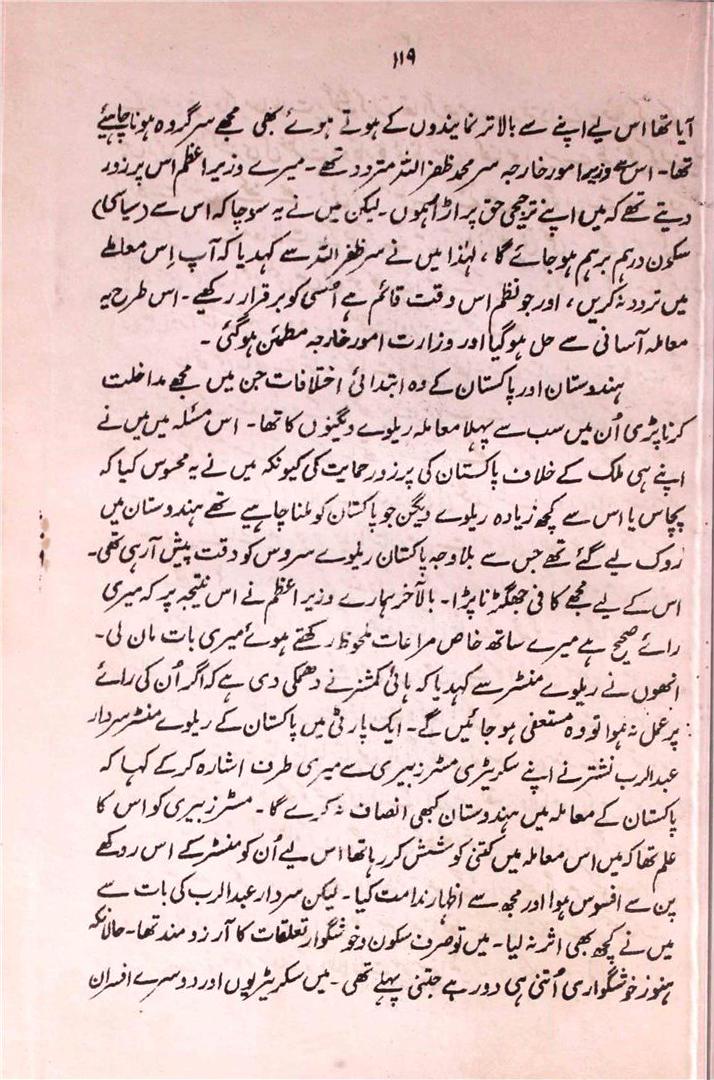 ۱۱۹
آیا تھا اس لیے اپنے سے بالاتر نمایندوں کے ہوتے ہوئے بھی مجھے سرگروہ ہونا چاہیے
تھا۔ اس سے وزیر امور خارجہ سر محمد ظفر اللہ متردد تھے۔ میرے وزیر اعظم اس پر زور
دیتے تھے کہ میں اپنے ترجیحی حق پر اڑا رہوں۔ لیکن میں نے یہ سوچا کہ اس سے (سیاسی)
سکون درہم برہم ہو جائے گا، لہٰذا میں نے سر ظفر اللہ سے کہدیا کہ آپ اِس معاملے
میں تردد نہ کریں، اور جو نظم اس وقت قائم ہے اُسی کو برقرار رکھیے۔ اس طرح یہ
معاملہ آسانی سے حل ہو گیا اور وزارت امور خارجہ مطمئن ہو گئی۔
ہندوستان اور پاکستان کے وہ ابتدائی اختلافات جن میں مجھے مداخلت
کرنا پڑی اُن میں سب سے پہلا معاملہ ریلوے ویگنوں کا تھا۔ اس مسئلہ میں میں نے
اپنے ہی ملک کے خلاف پاکستان کی پرزور حمایت کی کیونکہ میں نے یہ محسوس کیا کہ
پچاس یا اس سے کچھ زیادہ ریلوے ویگن جو پاکستان کو ملنا چاہیے تھے ہندوستان میں
روک لیے گئے تھے جس سے بلاوجہ پاکستان ریلوے سروس کو دقت پیش آرہی تھی۔
اس کے لیے مجھے کافی جھگڑنا پڑا۔ بالآخر ہمارے وزیر اعظم نے اس نتیجہ پر کہ میری
رائے صحیح ہے میرے ساتھ خاص مراعات ملحوظ رکھتے ہوئے میری بات مان لی۔
انھوں نے ریلوے منسٹر سے کہدیا کہ ہائی کمشنر نے دھمکی دی ہے کہ اگر اُن کی رائے
پر عمل نہ ہوا تو وہ مستعفی ہو جائیں گے۔ ایک پارٹی میں پاکستان کے ریلوے منسٹر سردار
عبدالرب نشتر نے اپنے سکریٹری مسٹر زبیری سے میری طرف اشارہ کرکے کہا کہ
پاکستان کے معاملہ میں ہندوستان کبھی انصاف نہ کرے گا۔ مسٹر زبیری کو اس کا
علم تھا کہ میں اس معاملہ میں کتنی کوشش کر رہا تھا اس لیے اُن کو منسٹر کے اس روکھے
پن سے افسوس ہوا اور مجھ سے اظہار ندامت کیا۔ لیکن سردار عبدالرب کی بات سے
میں نے کچھ بھی اثر نہ لیا۔ میں تو صرف سکون و خوشگوار تعلقات کا آرزو مند تھا۔ حالانکہ
ہنوز خوشگواری اُتنی ہی دور ہے جتنی پہلے تھی۔ میں سکریٹریوں اور دوسرے افسران